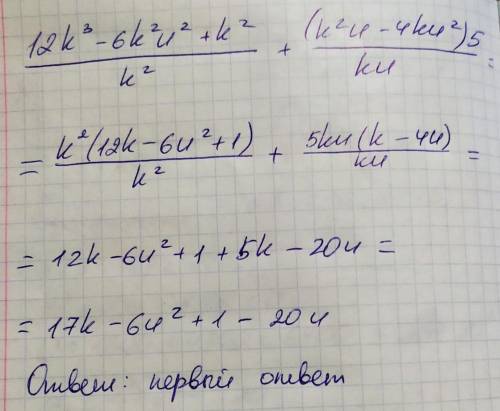 (12k³ - 6k²u² + k²)/k² + ((k²u - 4ku²)5)/ku =
= k²(12k - 6u² + 1)/k² + 5ku(k - 4u)/ku =
= 12k - 6u² + 1 + 5k - 20u =
= 17k - 6u² + 1 - 20u
Ответ: первый ответ